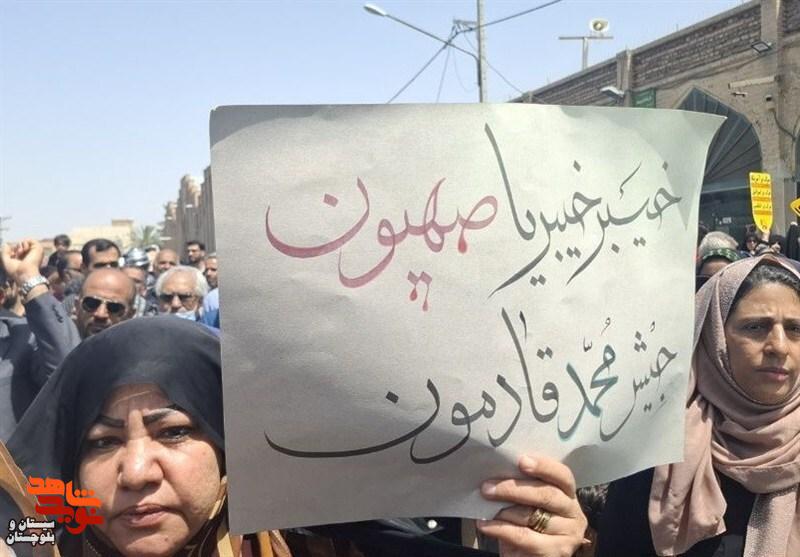 خیبر خیبر یا صهیون
جیش مُحمّد قادمون
نوید شاهد
سیستان و
بلوچستان